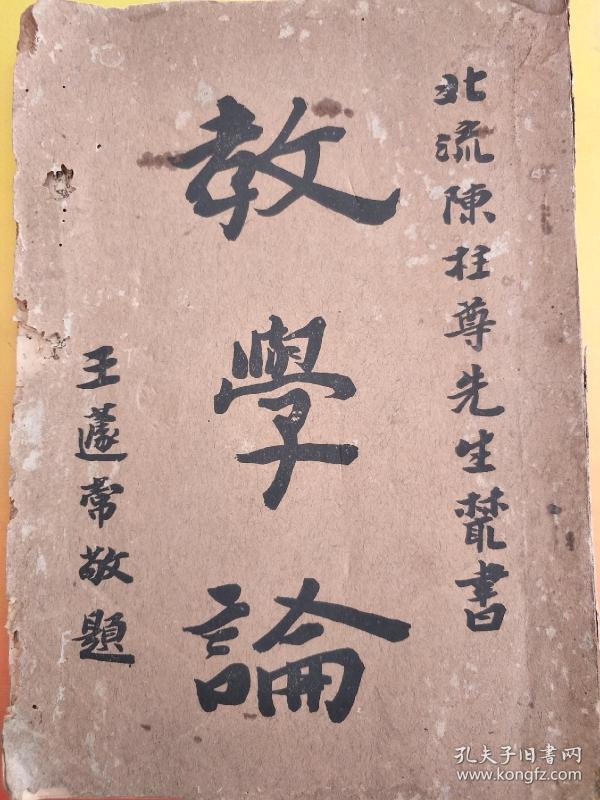 北流陳柱尊先生叢書
教學論
王蘧常敬題
孔夫子旧書网
www.kongfz.com